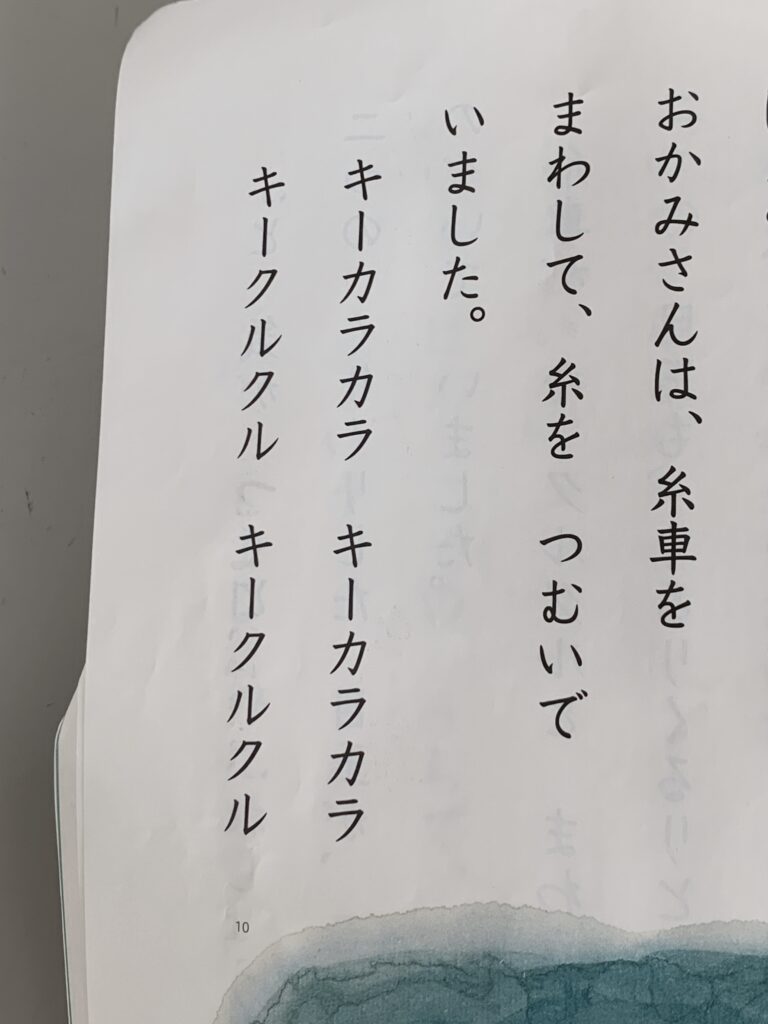 おかみさんは、糸車を
まわして、糸を つむいで
いました。
キーカラカラ キーカラカラ
キークルクル キークルクル
10